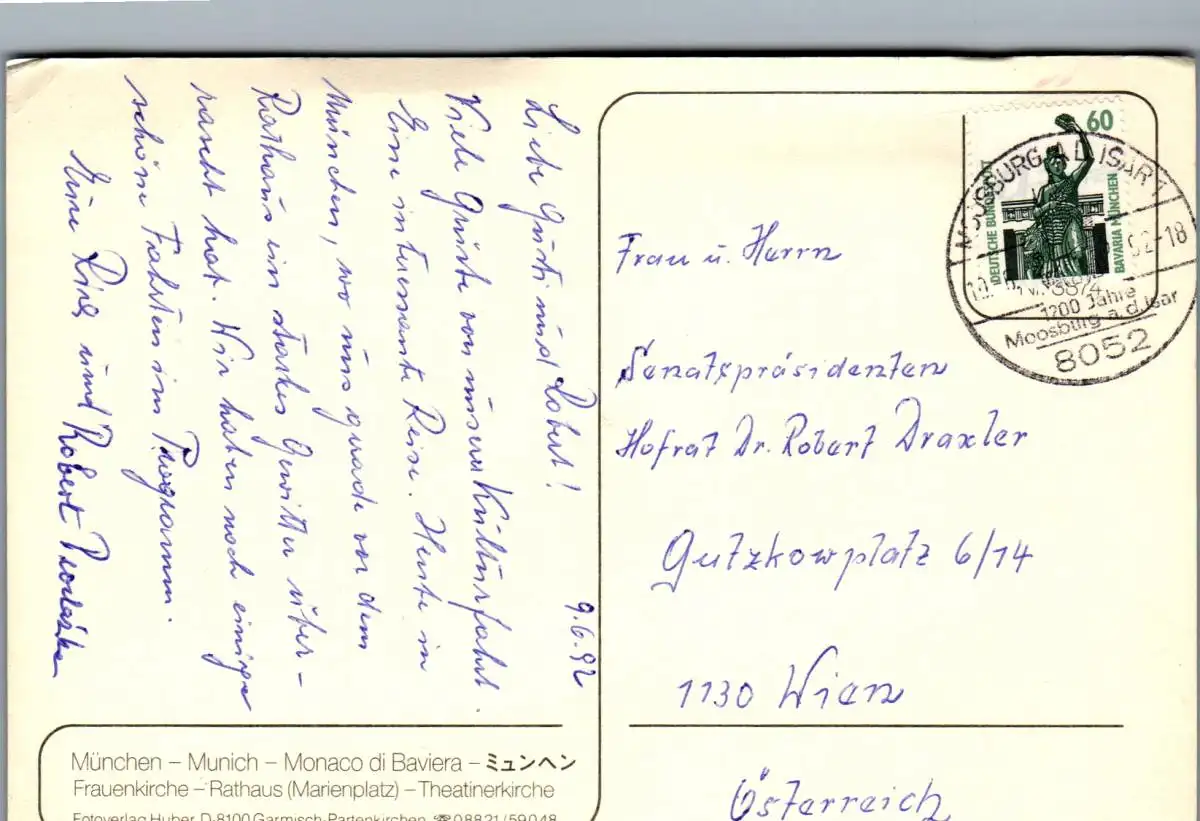 9.6.92
Liebe Gusti und Robert!
Viele Grüße von unserer Kulturfahrt.
Eine interessante Reise. Heute in
München, wo uns grade vor dem
Rathaus ein starkes Gewitter über-
rascht hat. Wir haben noch einige
schöne Fahrten im Programm.
und Robert
Frau u. Herrn
Senatspräsidenten
Hofrat Dr. Robert Draxler
Gutzkowplatz 6/14
1130 Wien
Österreich
60
DEUTSCHE BUNDESPOST
BAVARIA MÜNCHEN
MOOSBURG A.D. ISAR 1
92-18
1200 Jahre
Moosburg a.d. Isar
8052
München – Munich – Monaco di Baviera – ミュンヘン
Frauenkirche – Rathaus (Marienplatz) – Theatinerkirche
Fotoverlag Huber, D-8100 Garmisch-Partenkirchen ☎ 08821/59048